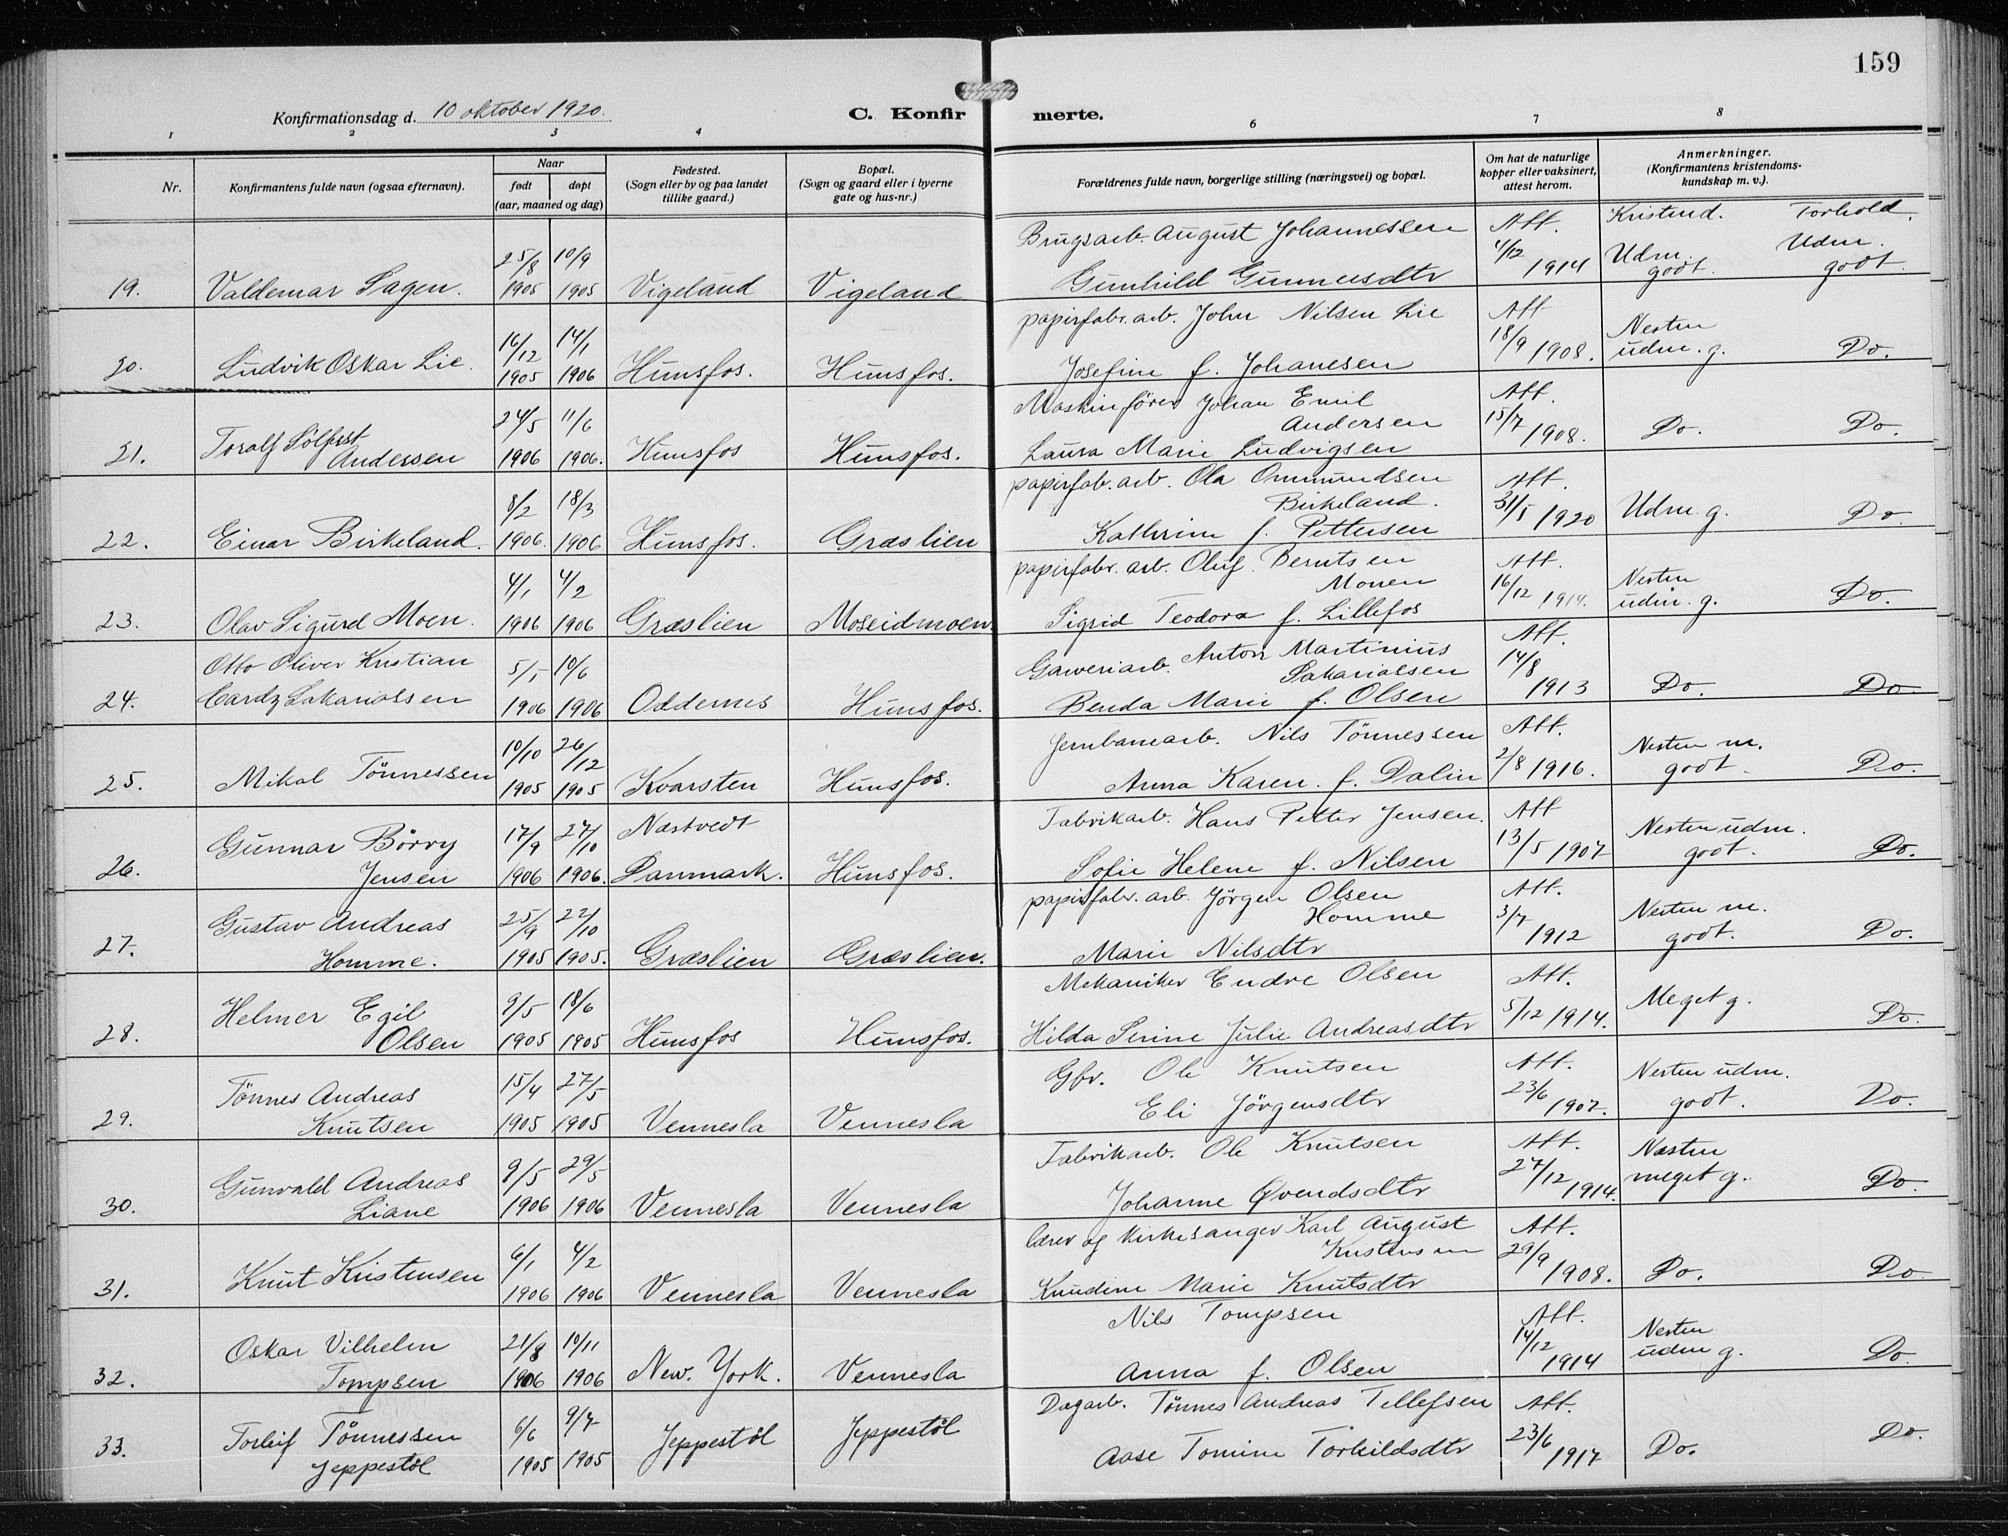 159
Konfirmationsdag d. 10 oktober 1920.
C. Konfirmerte.
1 2 3 4 6 7 8
Nr.
Konfirmantens fulde navn (ogsaa efternavn).
Naar
født døpt
(aar, maaned og dag)
Fødested.
(Sogn eller by og paa landet
tillike gaard.)
Bopæl.
(Sogn og gaard eller i byerne
gate og hus-nr.)
Forældrenes fulde navn, borgerlige stilling (næringsvei) og bopæl.
Om hat de naturlige
kopper eller vaksinert,
attest herom.
Anmerkninger.
(Konfirmantens kristendoms-
kundskap m. v.).
Kristend. Forhold.
Brugsarb. August Johannessen Att.
25/8 10/9 4/12 Udm. Udm.
19. Valdemar Sagen. 1905 1905 Vigeland Vigeland Gunhild Gunneusdtr 1914 godt. godt.
papirfabr. arb. John Nilsen Lie Att
16/12 14/1 18/9 Nesten
20. Ludvik Oskar Lie. 1905 1906 Hunsfos. Hunsfos. Josefine f. Johanesen 1908. udm. g. Do.
Maskinfører Johan Emil Att.
24/5 11/6 Andersen 15/7
21. Toralf Sølfest Andersen 1906 1906. Hunsfos Hunsfos. Laura Marie Ludvigsen 1908. Do. Do.
papirfab. arb. Ola Ommundsen Att.
8/2 18/3 Birkeland. 31/5
22. Einar Birkeland. 1906. 1906 Hunsfos. Græslien Kathrine f. Pettersen 1920 Udm. g. Do.
papirfabr. arb. Oluf Berntsen Att.
4/1 4/2 Monen 16/12 Nesten
23. Olav Sigurd Moen. 1906 1906 Græslien Moseidmoen Sigrid Teodora f. Lillefos 1914. udm. g. Do.
Otto Oliver Kristian Garveriarb. Anton Martinius Att.
5/- 10/6 Sakariassen 14/8
24. Cardz Sakariassen 1906 1906 Oddernes Hunsfos. Benda Marie f. Olsen 1913 Do. Do.
Jernbanearb. Nils Tønnessen Att.
10/10 26/12 2/8 Nesten m.
25. Mikal Tønnessen 1905 1905 Kvarsten Hunsfos. Anna Karen f. Dalin 1916. godt. Do.
Fabrikarb. Hans Petter Jensen. Att
Gunnar Børry 17/9 27/10 Næstvedt 13/5 Nesten udm.
26. Jensen 1906 1906. Danmark. Hunsfos. Sofie Helene f. Nilsen 1907 godt. Do.
papirfabr. arb. Jørgen Olsen Att.
Gustav Andreas 25/9 22/10 Homme 3/7 Nesten m.
27. Homme. 1905 1905. Græslien Græslien. Marie Nilsdtr 1912 godt. Do.
Mekaniker Endre Olsen Att.
Helmer Egil 9/5 18/6 5/12 Meget g.
28. Olsen 1905 1905 Hunsfos Hunsfos. Hilda Serine Julie Andreasdtr 1914. Do.
Gbr. Ole Knutsen Att.
Tønnes Andreas 15/4 27/5 23/6 Nesten udm.
29. Knutsen 1905 1905 Vennesla Vennesla Eli Jørgensdtr 1907. godt. Do.
Fabrikarb. Ole Knutsen Att.
Gunvald Andreas 9/5 29/5 27/12 Næsten
30. Liane 1906 1906 Vennesla Vennesla Johanne Øvendsdtr 1914. meget g. Do.
lærer og kirkesanger Karl August Att.
6/1 4/2 Kristensen 29/9
31. Knut Kristensen 1906 1906 Vennesla Vennesla Knudine Marie Knutsdtr 1908. Do. Do
Nils Tompsen Att.
Oskar Vilhelm 21/8 10/11 14/12 Nesten
32. Tompsen 1906 1906 New. York. Vennesla Anna f. Olsen 1914 udm g. Do.
Dagarb. Tønnes Andreas Tellefsen Att.
Torleif Tønnessen 6/6 9/7 23/6
33. Jeppestøl 1905 1905 Jeppestøl Jeppestøl Aase Tomine Torkildsdtr 1917 Do. Do.